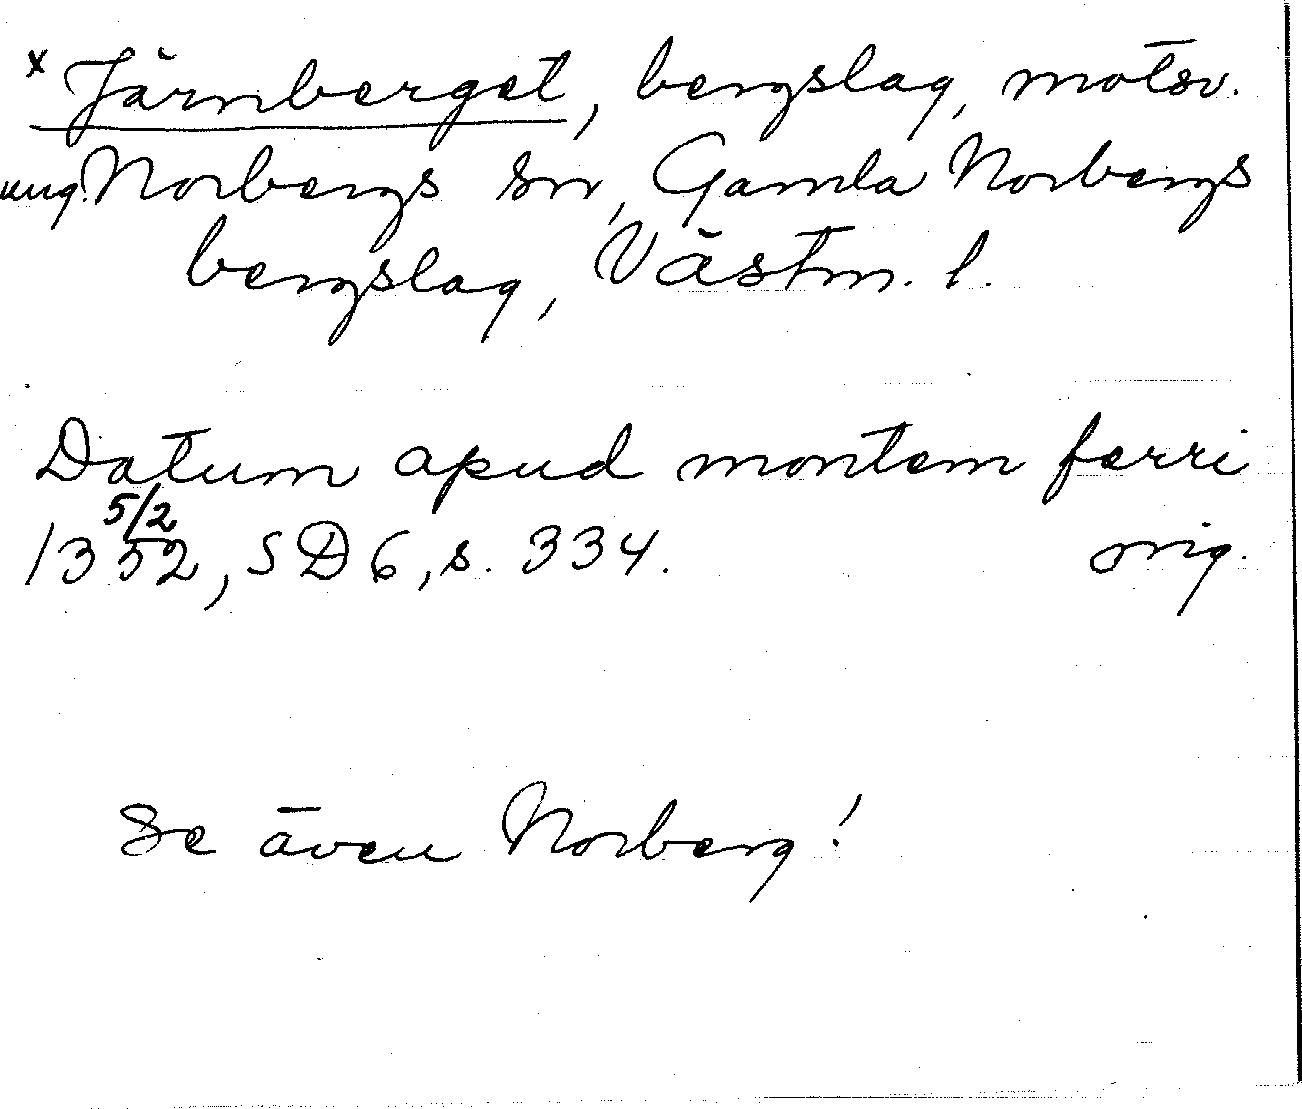 x Järnberget, bergslag, motsv.
ung. Norbergs sn, Gamla Norbergs
bergslag, Västm. l.
Datum apud montem ferri
5/2
1352, SD 6, s. 334. orig.
Se även Norberg!